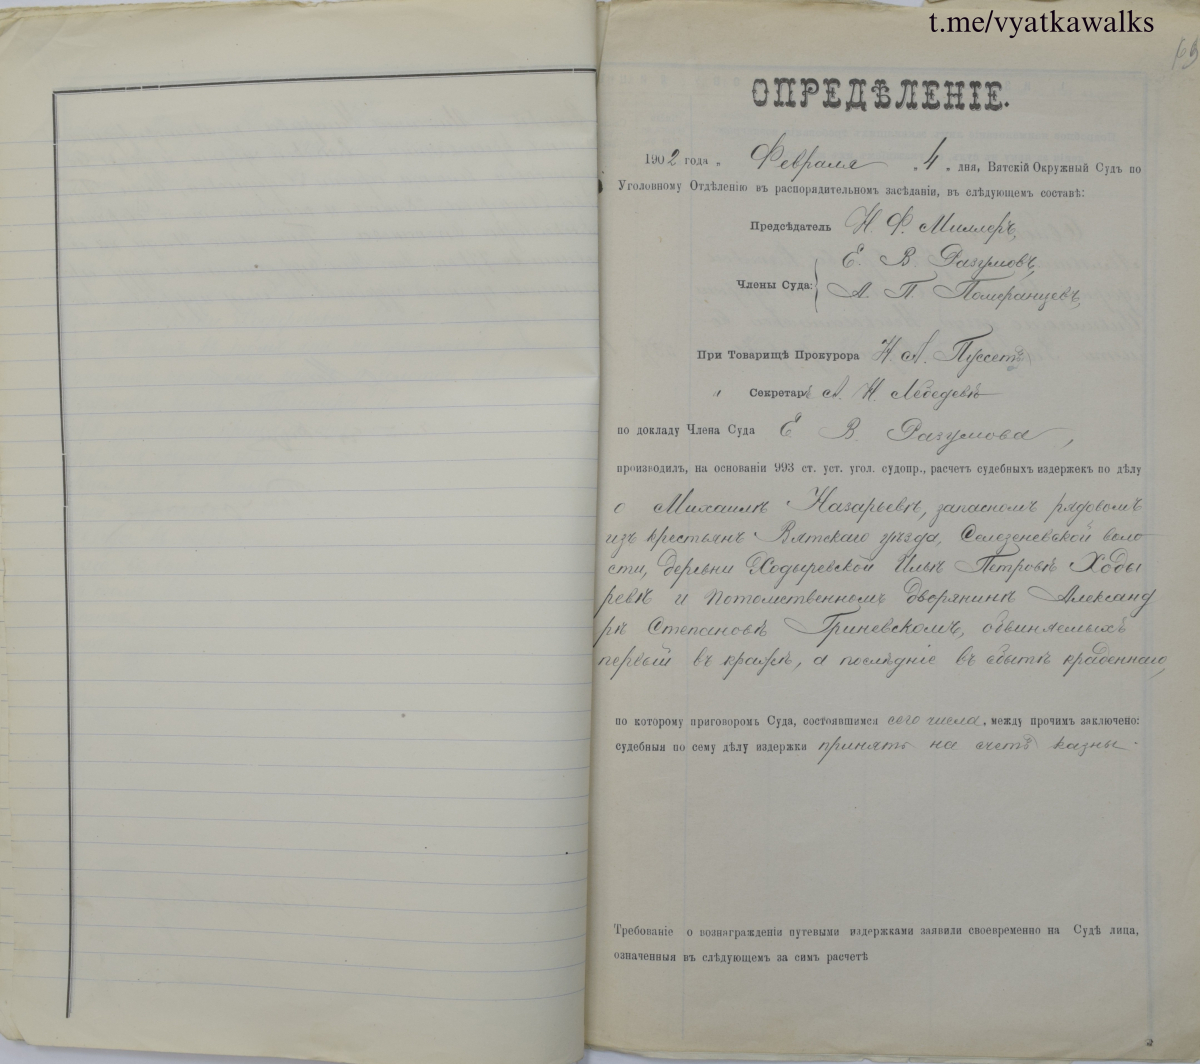 t.me/vyatkawalks
ОПРЕДѢЛЕНІЕ.
1902 года „ Февраля „ 4 „ дня, Вятскій Окружный Судъ по
Уголовному Отдѣленію въ распорядительномъ засѣданіи, въ слѣдующемъ составѣ:
Предсѣдатель Н. Ф. Миллеръ,
Е. В. Разумовъ,
Члены Суда:
А. П. Померанцевъ,
При Товарищѣ Прокурора Н. А. Пуссетъ
„ Секретарѣ А. Н. Лебедевѣ
по докладу Члена Суда Е. В. Разумова,
производилъ, на основаніи 993 ст. уст. угол. судопр., расчетъ судебныхъ издержекъ по дѣлу
о Михаилѣ Назарьевѣ, запасномъ рядовомъ
изъ крестьянъ Вятскаго уѣзда, Селезеневской воло
сти, деревни Ходыревской Ильѣ Петровѣ Ходы
ревѣ и потомственномъ дворянинѣ Александ
рѣ Степановѣ Гриневскомъ, обвиняемыхъ
первый въ кражѣ, а послѣдніе въ сбытѣ краденнаго,
по которому приговоромъ Суда, состоявшимся сего числа, между прочимъ заключено:
судебныя по сему дѣлу издержки принять на счетъ казны.
Требованіе о вознагражденіи путевыми издержками заявили своевременно на Судѣ лица,
означенныя въ слѣдующемъ за симъ расчетѣ